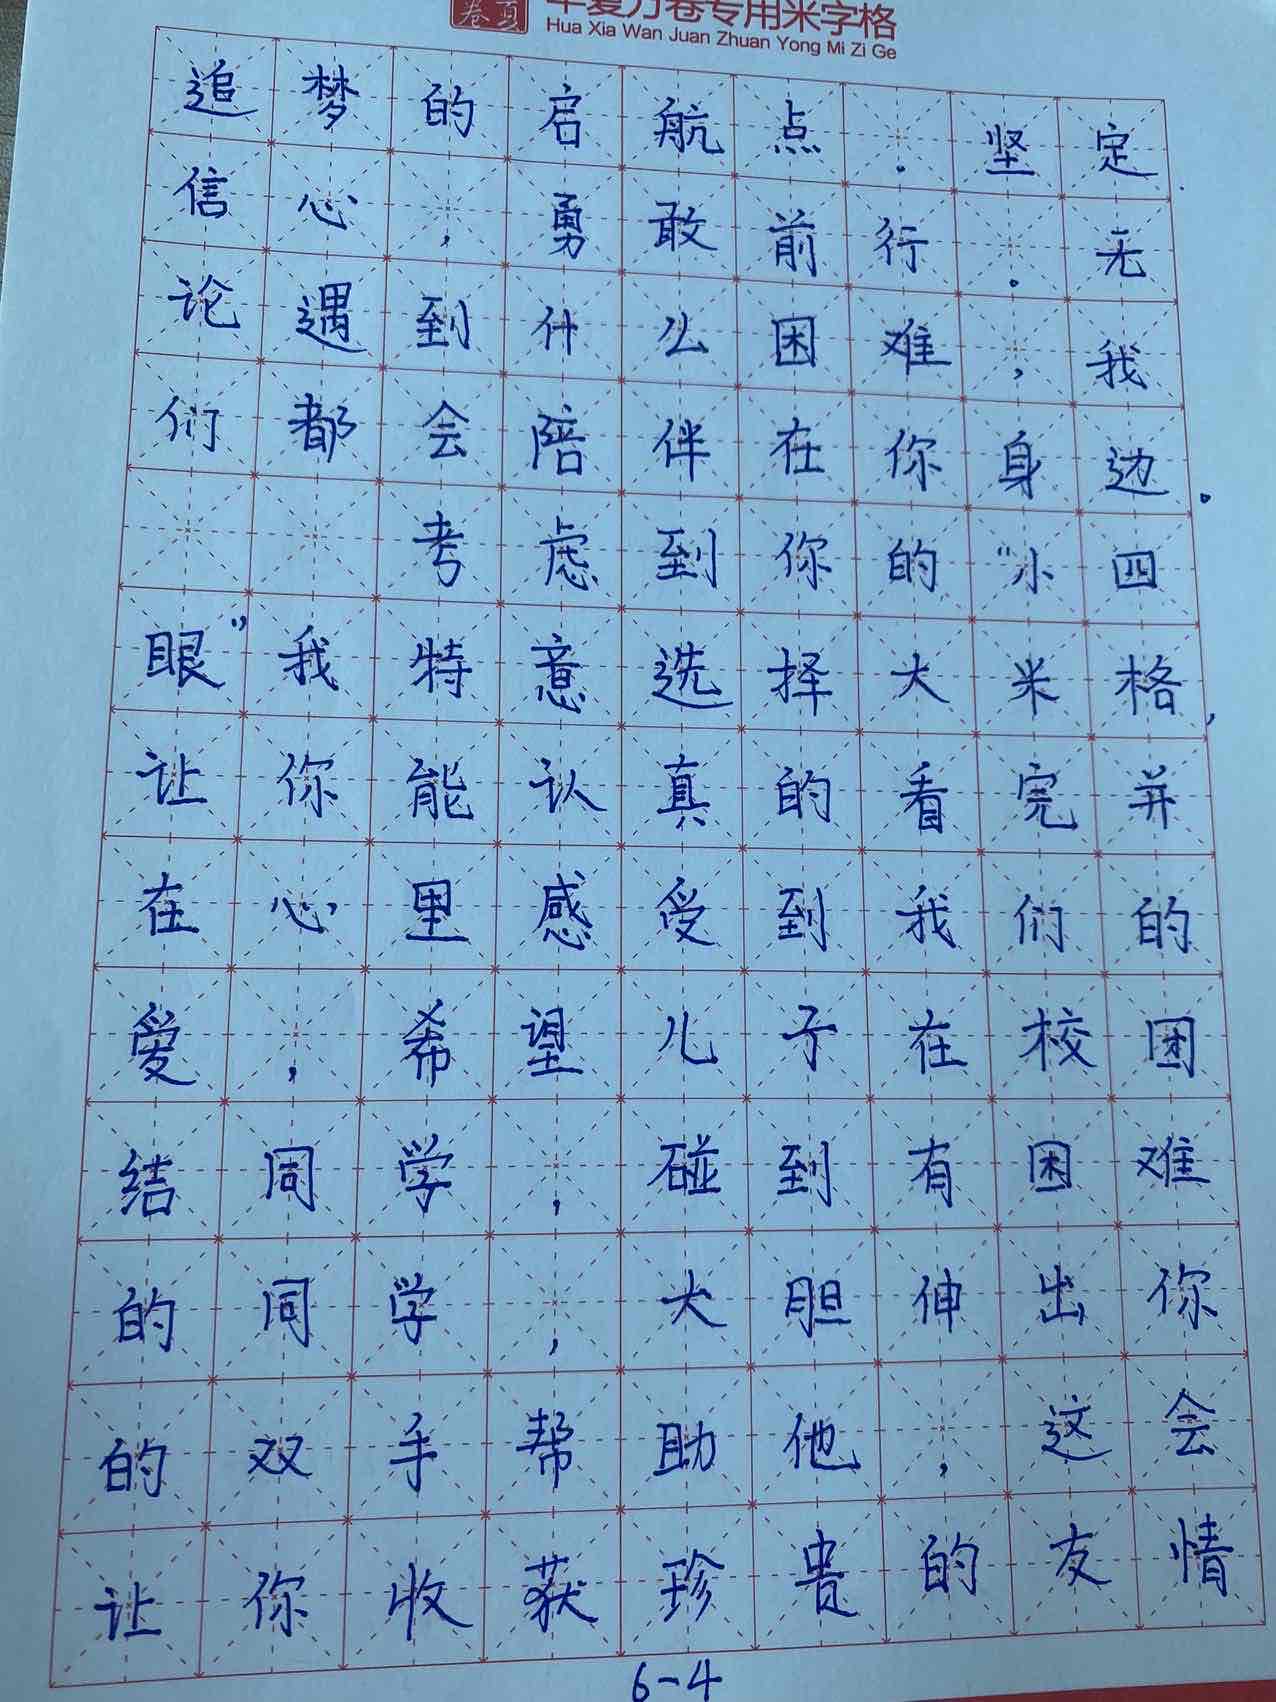 华夏万卷专用米字格
Hua Xia Wan Juan Zhuan Yong Mi Zi Ge
追梦的启航点。坚定
信心,勇敢前行。无
论遇到什么困难,我
们都会陪伴在你身边。
考虑到你的“小四
眼”我特意选择大米格,
让你能认真的看完并
在心里感受到我们的
爱,希望儿子在校团
结同学,碰到有困难
的同学,大胆伸出你
的双手帮助他,这会
让你收获珍贵的友情
6-4